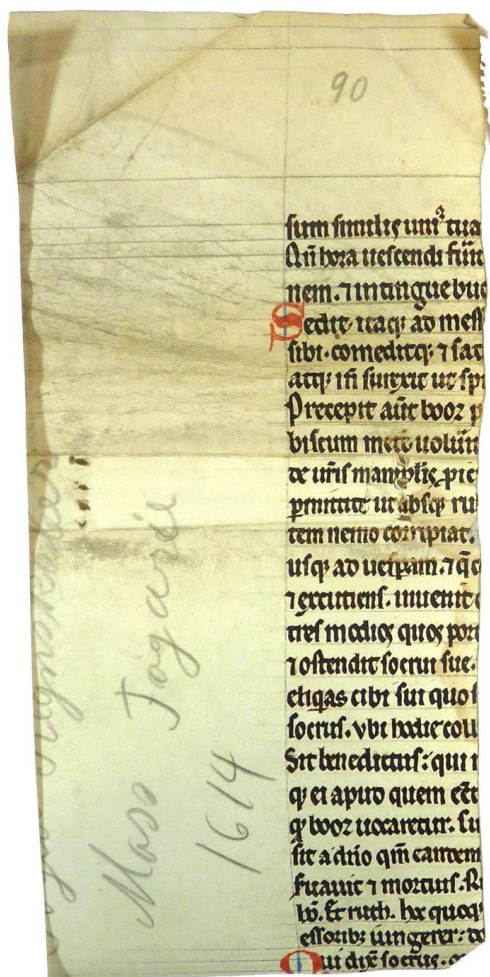 90
sum similis uniꝰ tua
Aut̄ hora uescendi fu͂it
nem. ⁊ intingue buc
Sedit itaqꝫ ad mess
sibi. comeditqꝫ ⁊ sat
atqꝫ in̄ surrexit ut spi
Precepit aūt booz p
biscum mete uolu͂it
de ur̄is manipulis ꝓic
ꝑmittite ut absqꝫ ru
tem nemo corripiat.
usqꝫ ad uesꝑam. ⁊ q̄
⁊ excutiens. inuenit
tres modios quos por
⁊ ostendit socrui sue.
eliq̄as cibi sui quo s
socrus. vbi hodie coll
Sit benedictus: qui
qꝫ ei apud quem eēt
qꝫ booz uocaretur. Cu
sit a dn̄o qm̄ eandem
suauit ⁊ mortuis. R
ho. Et ruth. hoc quoqꝫ
essoribꝫ iungerer: do
Cui dix̄ socrus.
Mass Fogarie
1614